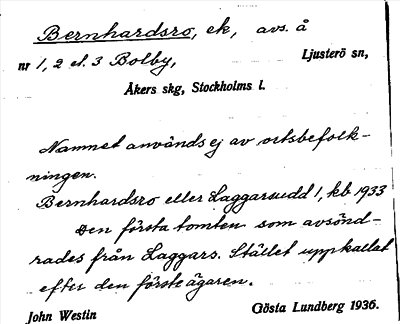 Bernhardsro, ek, avs. å
nr 1, 2 el. 3 Bolby, Ljusterö sn,
Åkers skg, Stockholms l.
Namnet används ej av ortsbefolk-
ningen.
Bernhardsro eller Laggarsudd 1, kb. 1933
Den första tomten som avsönd-
rades från Laggars. Stället uppkallat
efter den förste ägaren.
John Westin Gösta Lundberg 1936.